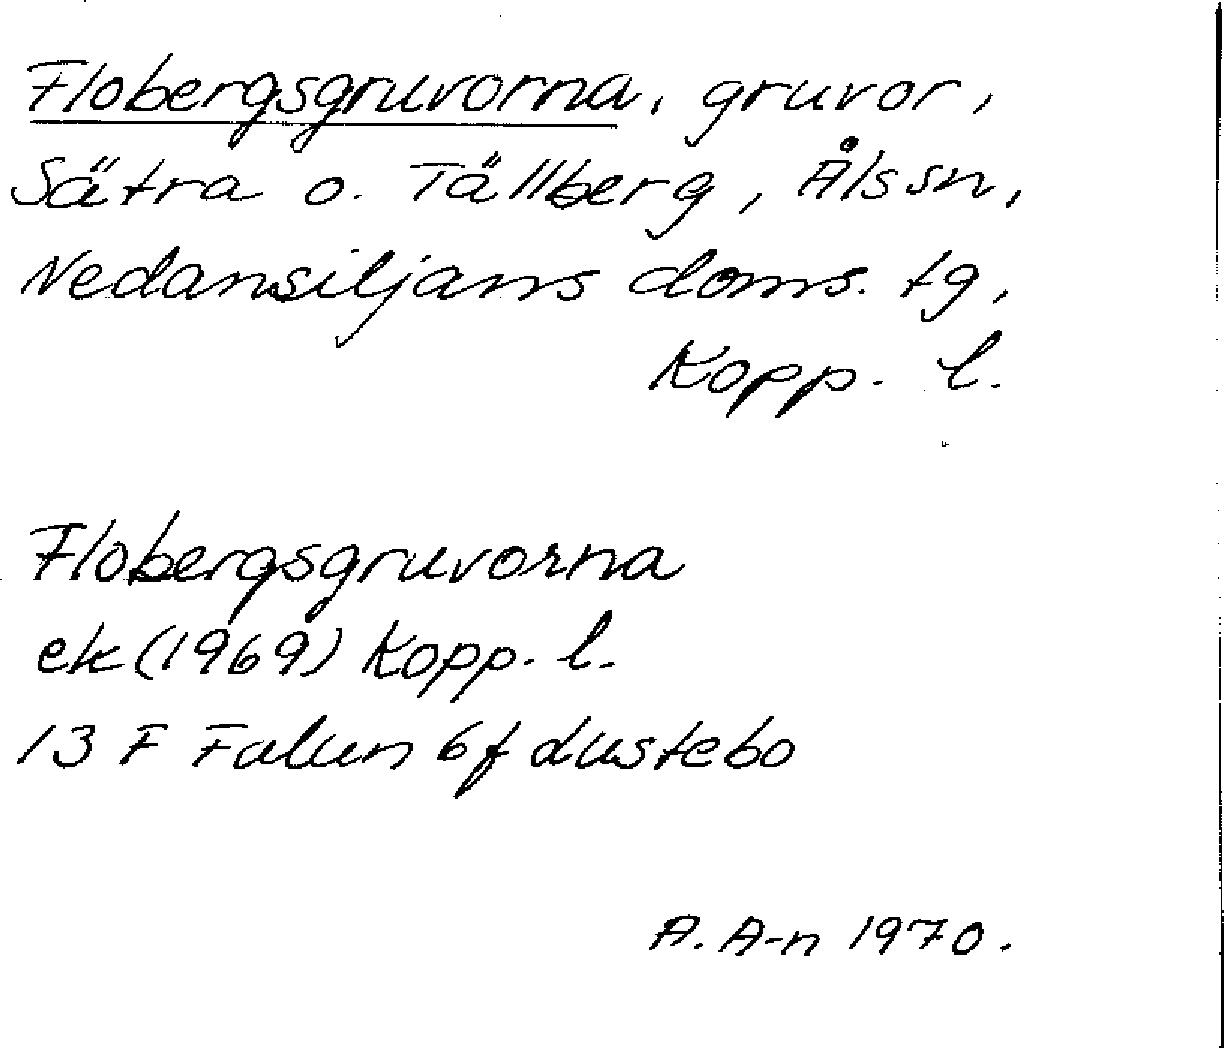 Flobergsgruvorna, gruvor,
Sätra o. Tällberg, Ålssn,
Nedansiljans doms. tg,
Kopp. l.
Flobergsgruvorna
ek (1969) Kopp. l.
13 F Falun 6f dustebo
A. A-n 1970.